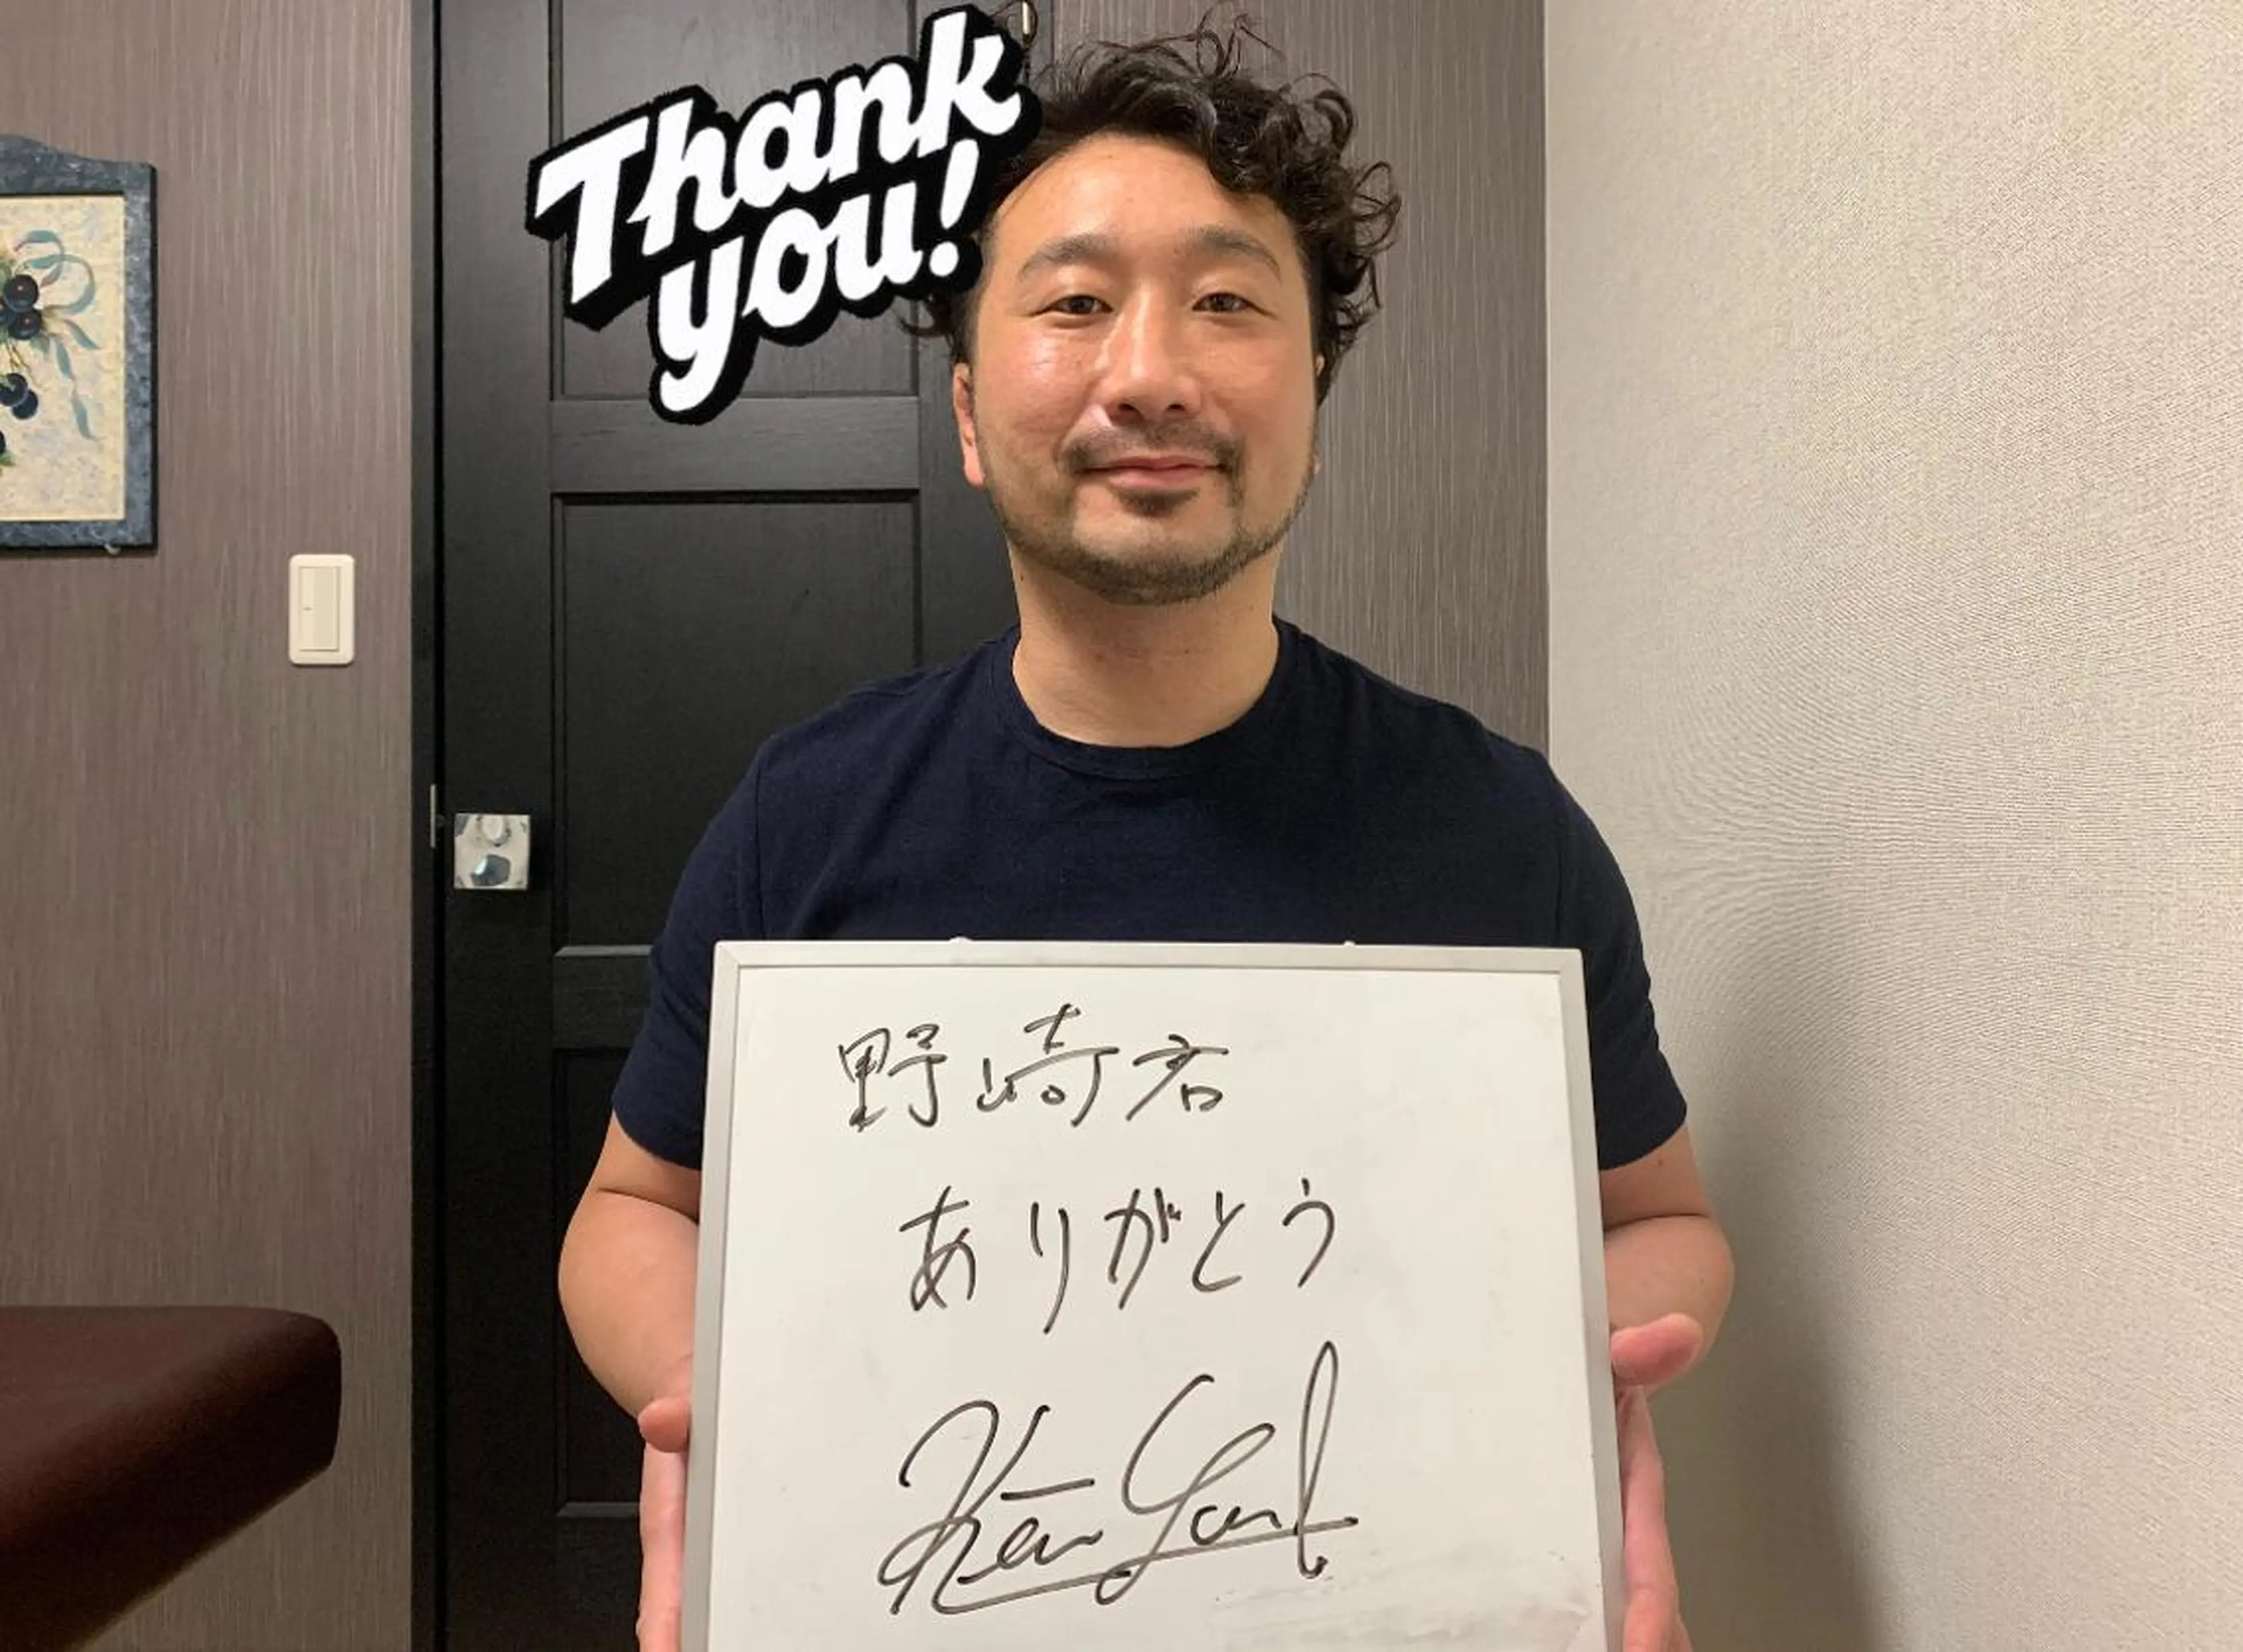 Thank
you!
野崎君
ありがとう
Ken